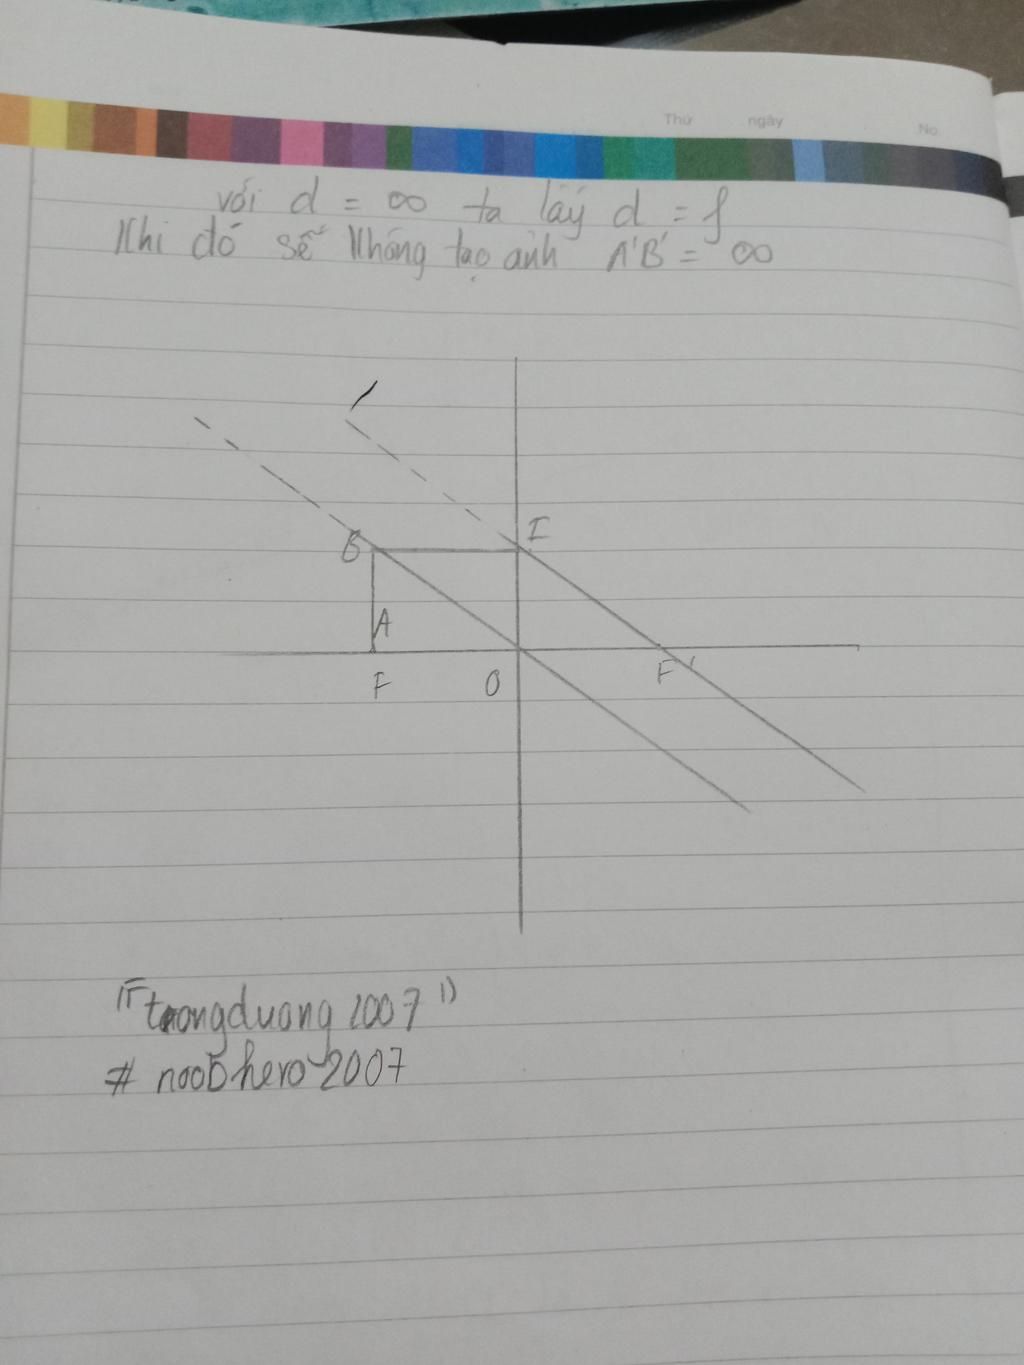 Thứ ngày No.
với d = ∞ ta lấy d = f
Khi đó sẽ không tạo ảnh A'B' = ∞
I
B
A
F O F'
"trongduong 2007"
# noobhero 2007